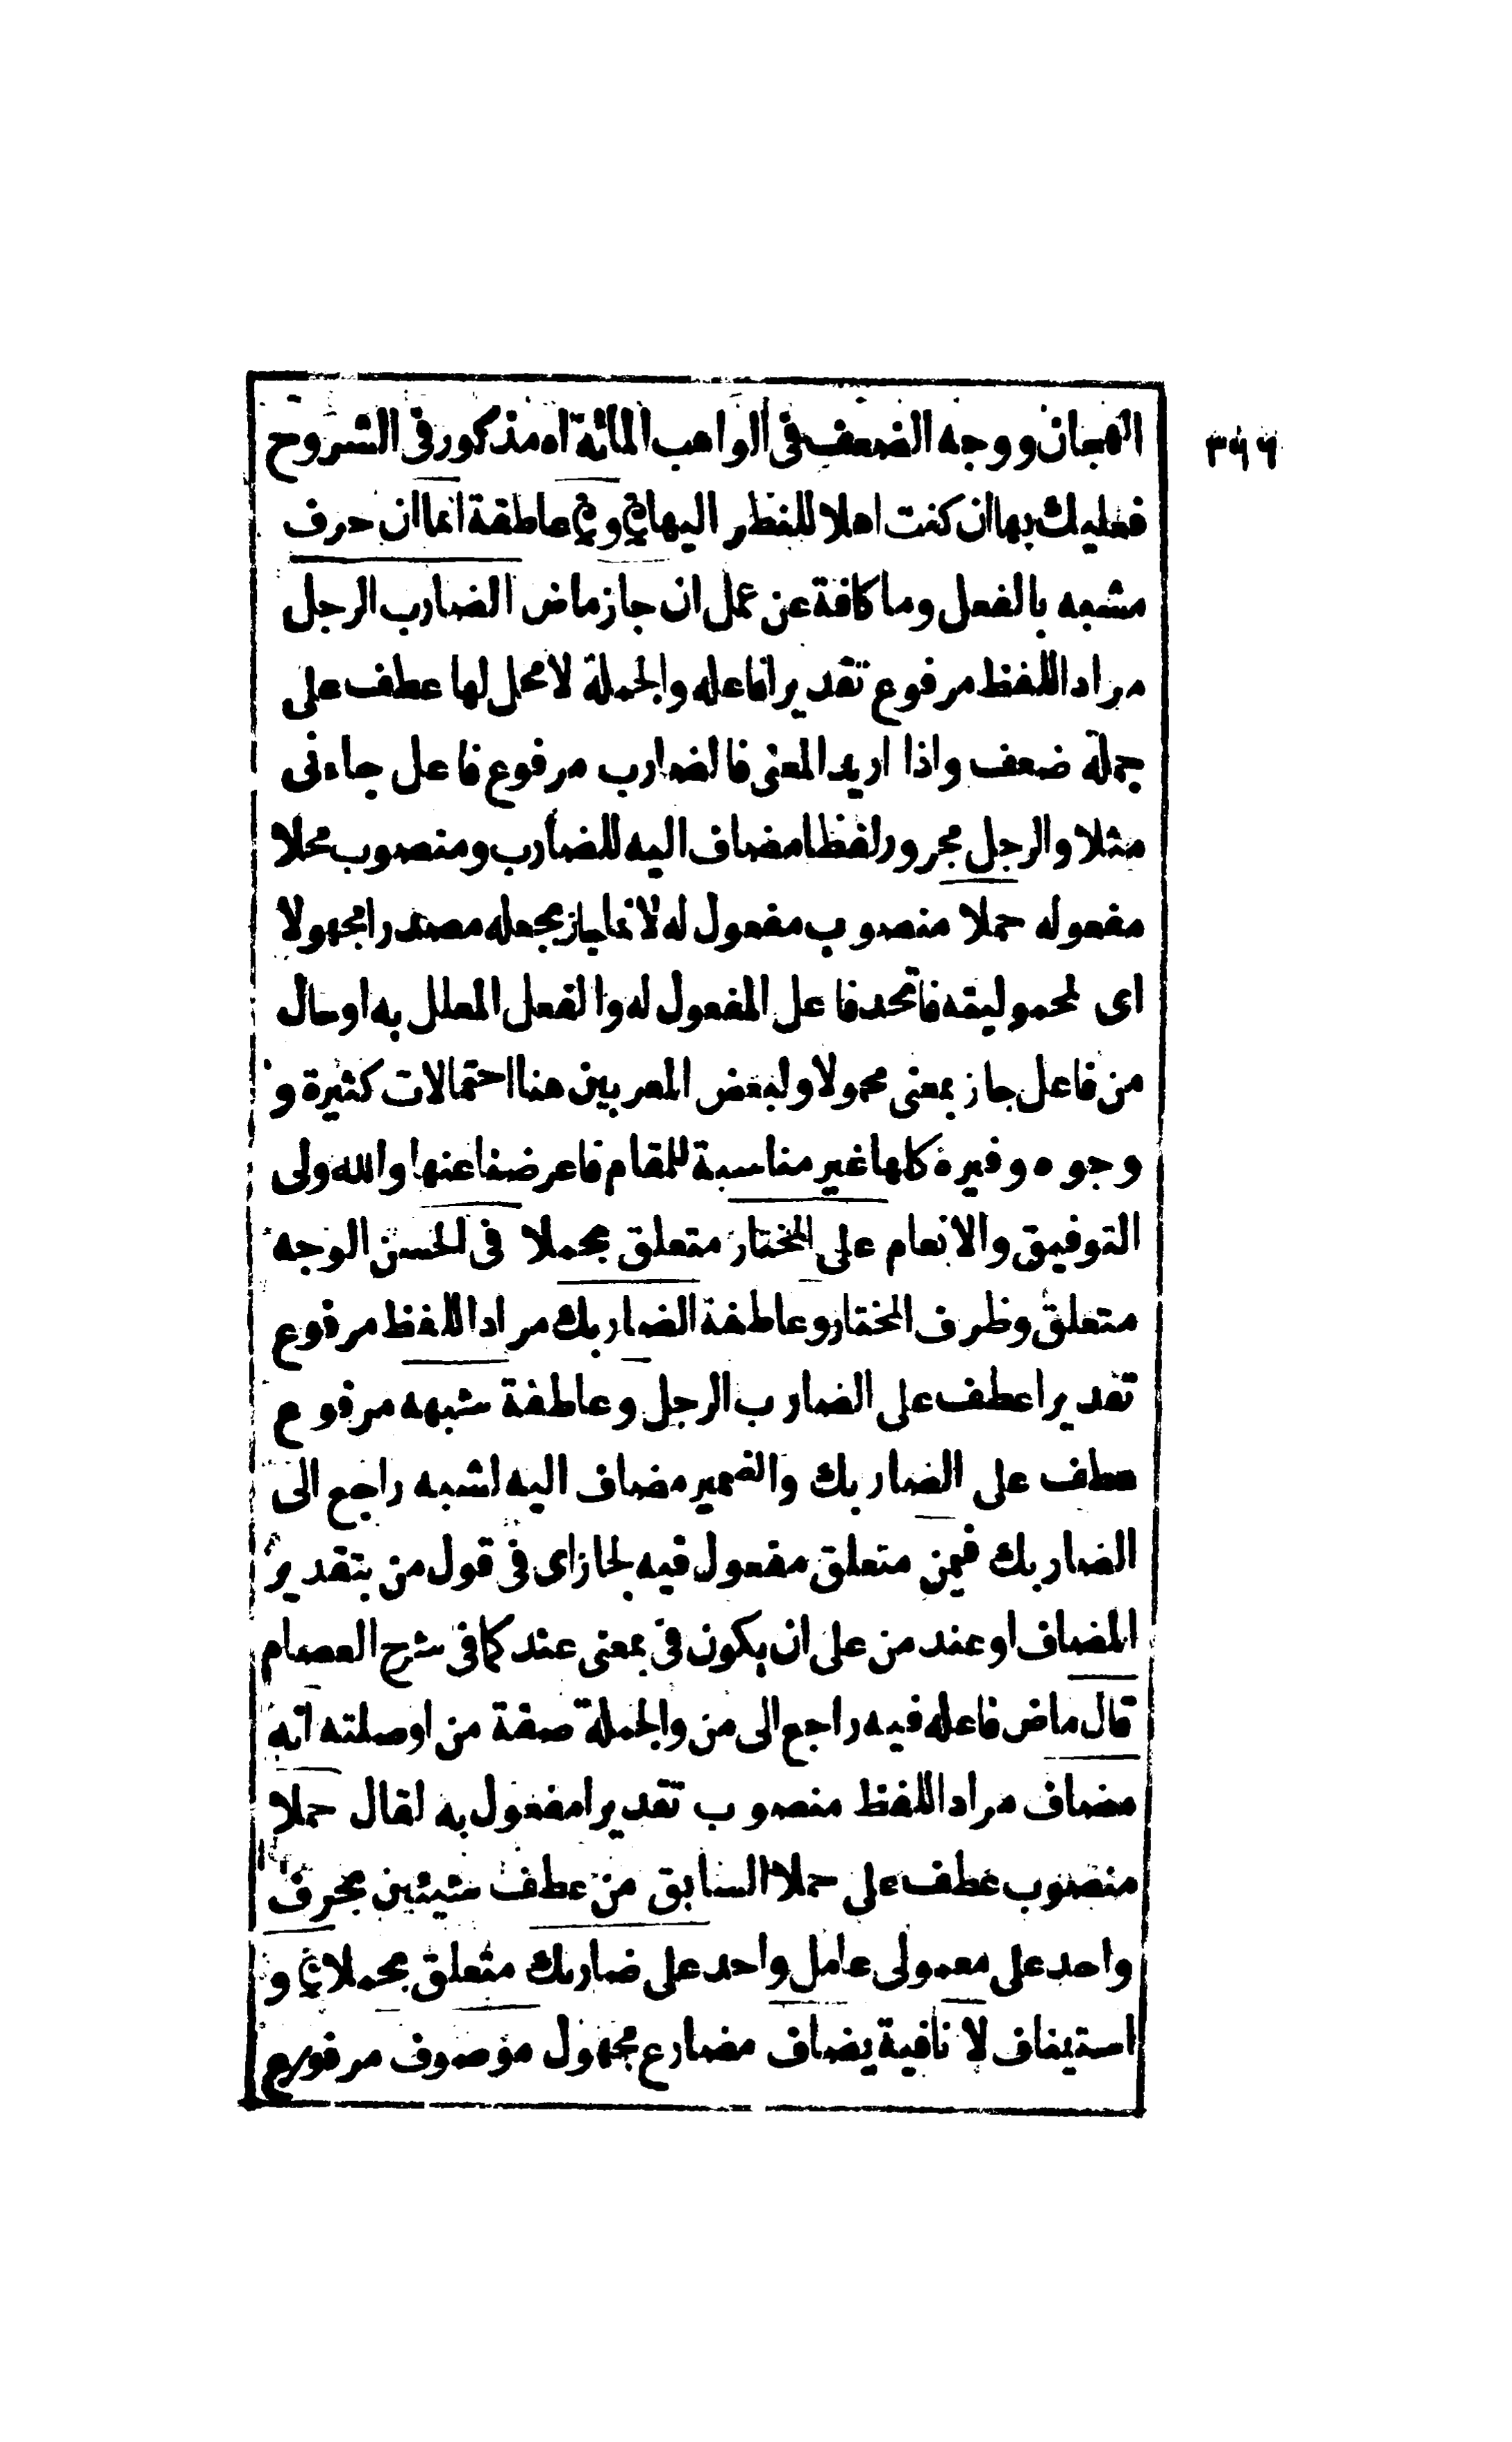 ٣٦٦
الهجان ووجه الضعف فى الواهب المائة اه مذكور فى الشروح
فعليك بها ان كنت اهلا للنظر اليها و عاطفة انما ان حرف
مشبه بالفعل وما كافة عن عمل ان جاز ماض الضارب الرجل
مراد اللفظ مرفوع تقديرا فاعله والجملة لا محل لها عطف على
جملة ضعف واذا اريد المعنى فالضارب مرفوع فاعل جاءنى
مثلا والرجل مجرور لفظا مضاف اليه للضارب ومنصوب محلا
مفعوله حملا منصوب مفعول له لانما جاز بجعله مصدرا مجهولا
اى لمحموليته فاتحد فاعل المفعول له والفعل المعلل به او حال
من فاعل جاز بمعنى محمولا ولبعض المعربين هنا احتمالات كثيرة و
وجوه وفيرة كلها غير مناسبة للمقام فاعرضنا عنها والله ولى
التوفيق والانعام على المختار متعلق بحملا فى الحسن الوجه
متعلق وظرف المختار وعاطفة الضاربك مراد اللفظ مرفوع
تقديرا عطف على الضارب الرجل وعاطفة شبهه مرفوع
عطف على الضاربك والضمير مضاف اليه لشبه راجع الى
الضاربك فيمن متعلق مفعول فيه لجاز اى فى قول من بتقدير
المضاف او عند من على ان يكون فى بمعنى عند كما فى شرح العصام
قال ماض فاعله فيه راجع الى من والجملة صفة من او صلته انه
مضاف مراد اللفظ منصوب تقديرا مفعول به لقال حملا
منصوب عطف على حملا السابق من عطف شيئين بحرف
واحد على معمولى عامل واحد على ضاربك متعلق بحملا و
استيناف لا نافية يضاف مضارع مجهول موصوف مرفوع